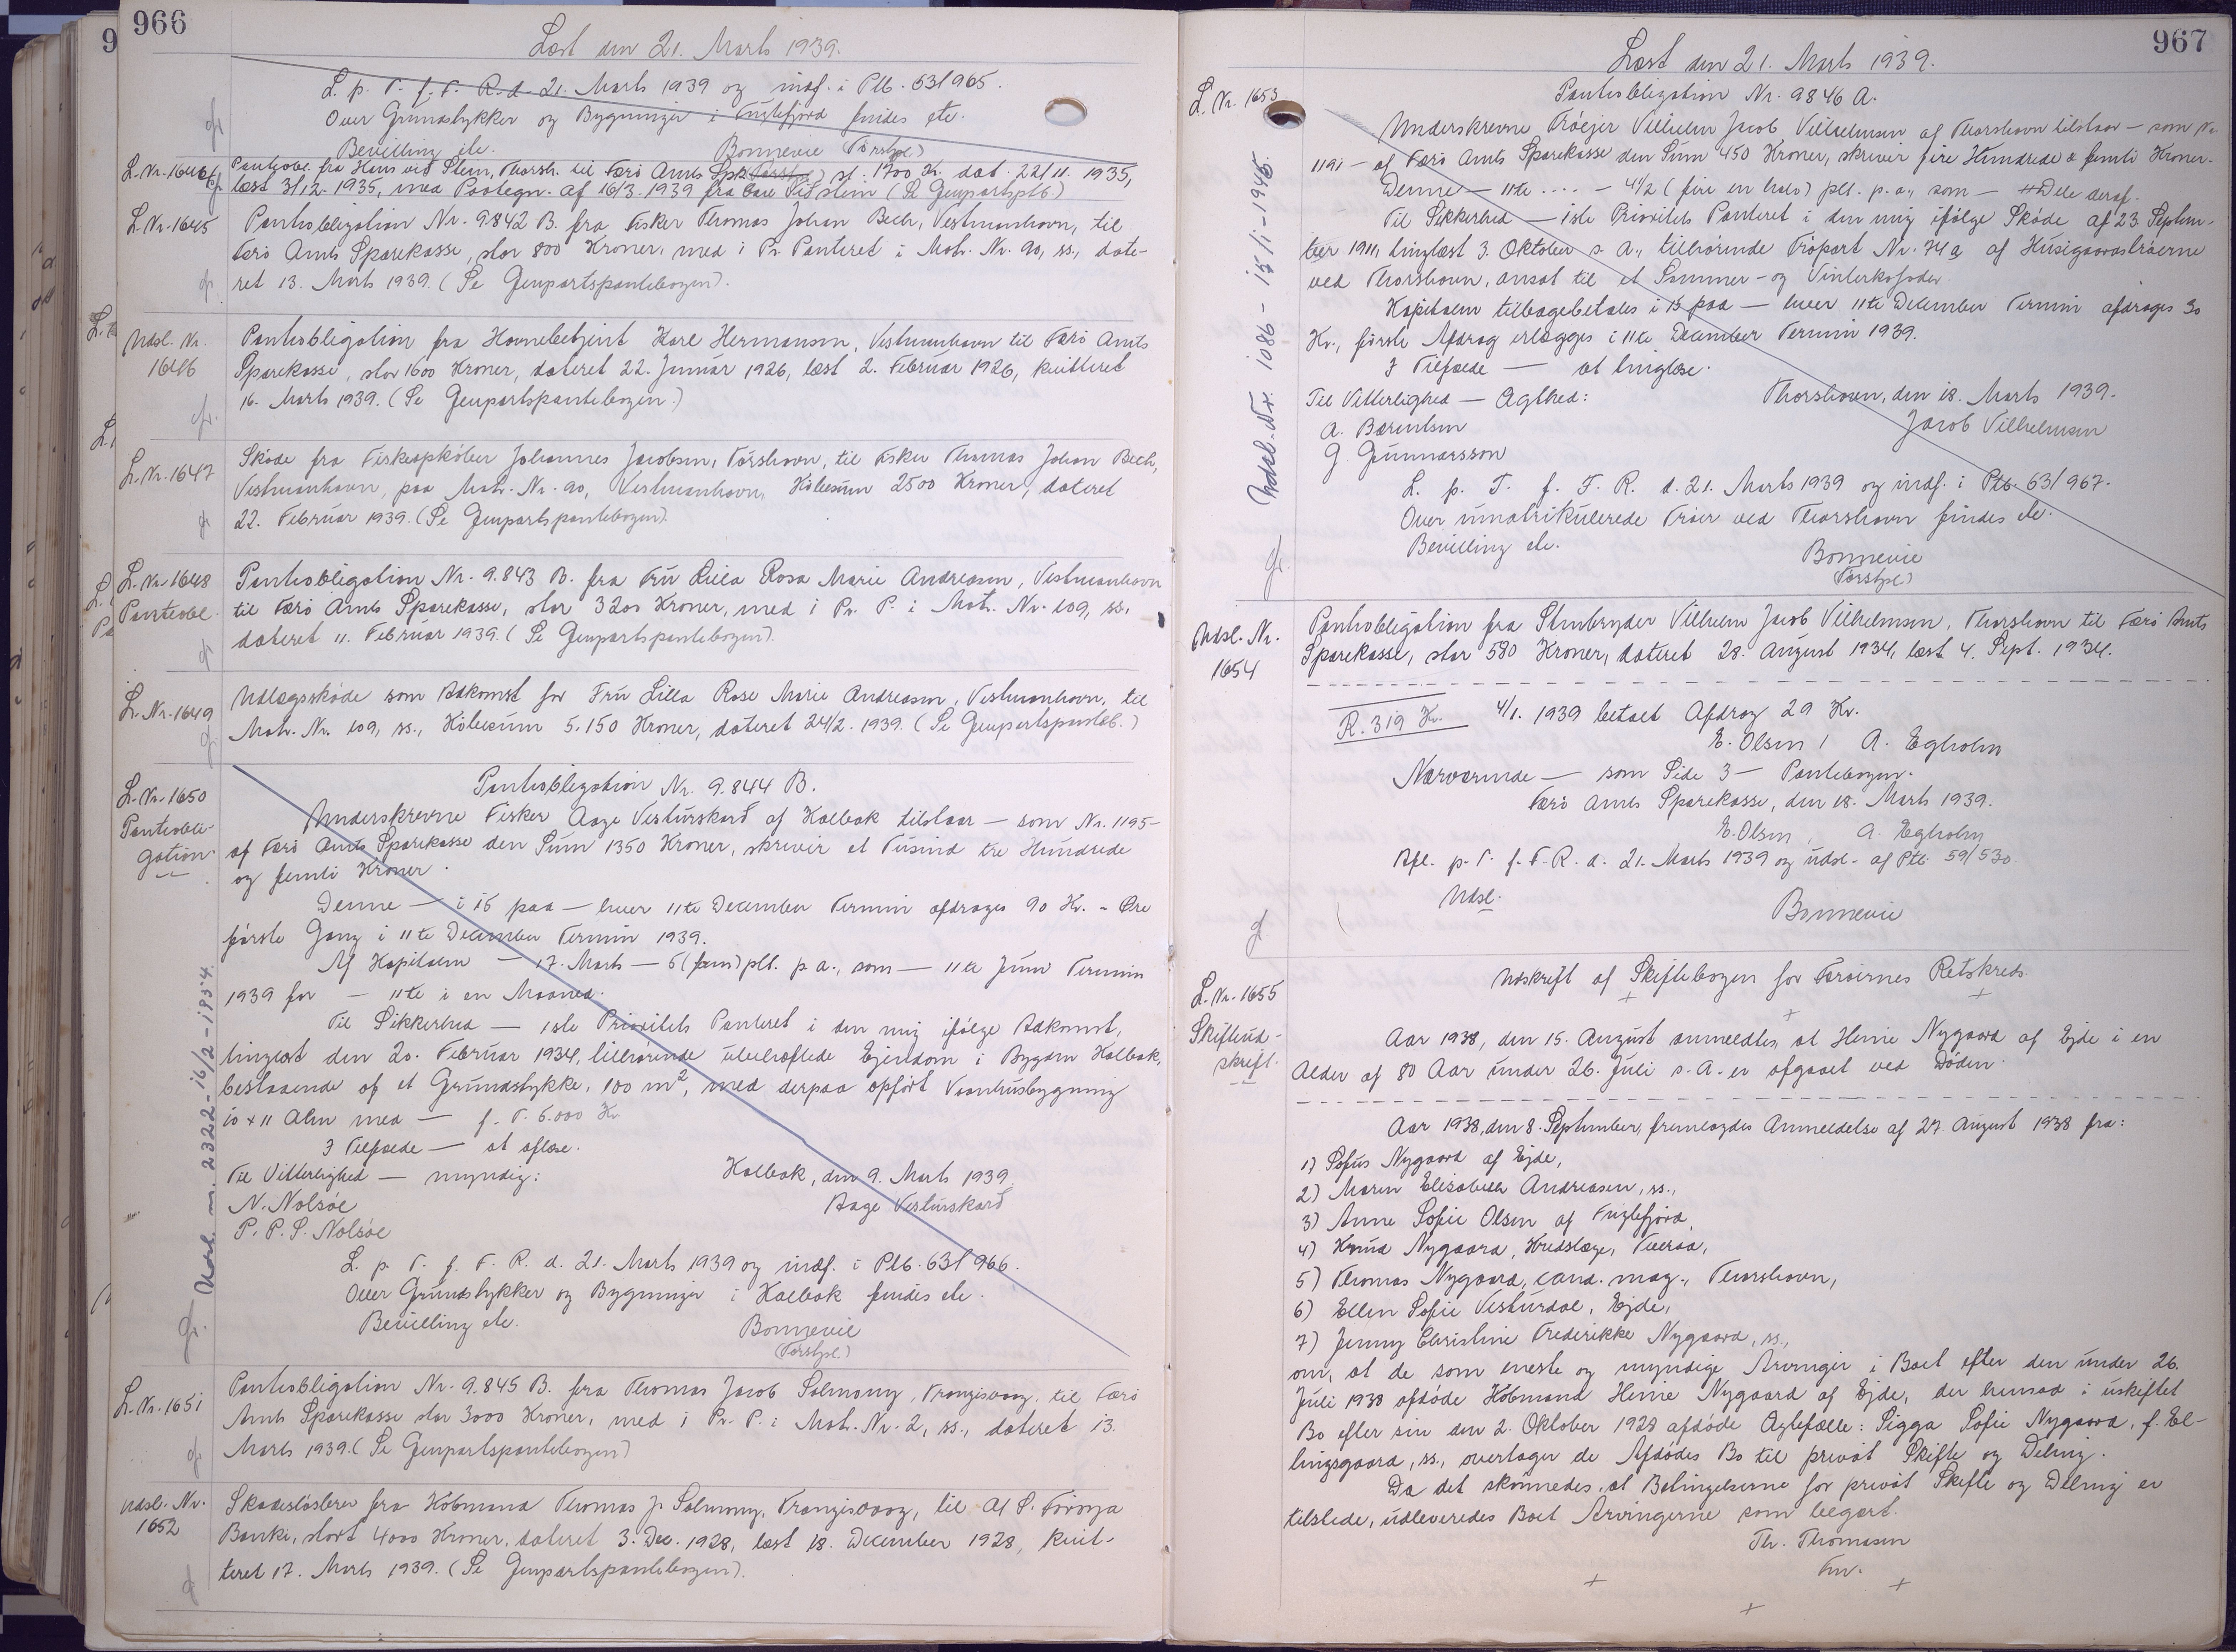 966
Læst den 21. Marts 1939.
L. p. T. f. F. R. d. 21. Marts 1939 og indf. i Ptb. 63/965.
Over Grundstykker og Bygninger i Fuglefjord findes etc.
Bevilling etc. Bonnevie (Forstpl.)
L. Nr. 1644 Panteobl. fra Hans við Stein, Thorsh. til Færø Amts Spk. st. 1700 Kr. dat. 22/11. 1935,
læst 31/12. 1935, med Paategn. af 16/3. 1939 fra (Se Genpartsptb)
L. Nr. 1645 Panteobligation Nr. 9.842 B. fra Fisker Thomas Johan Bech, Vestmanhavn, til
Færø Amts Sparekasse, stor 800 Kroner, med 1 Pr. Panteret i Matr. Nr. 90, ss., date-
ret 13. Marts 1939. (Se Genpartspantebogen).
Udsl. Nr. 1646 Panteobligation fra Havnebetjent Karl Hermansen, Vestmanhavn til Færø Amts
Sparekasse, stor 1600 Kroner, dateret 22. Januar 1926, læst 2. Februar 1926, kvitteret
16. Marts 1939. (Se Genpartspantebogen.)
L. Nr. 1647 Skøde fra Fiskeopkøber Johannes Jacobsen, Tórshavn, til Fisker Thomas Johan Bech,
Vestmanhavn, paa Matr. Nr. 90, Vestmanhavn, Købesum 2500 Kroner, dateret
22. Februar 1939. (Se Genpartspantebogen).
L. Nr. 1648 Panteobligation Nr. 9.843 B. fra Fru Lilla Rosa Marie Andreasen, Vestmanhavn
Panteobl. til Færø Amts Sparekasse, stor 3200 Kroner, med 1 Pr. P. i Matr. Nr. 109, ss.,
dateret 11. Februar 1939. (Se Genpartspantebogen).
L. Nr. 1649 Udlægsskøde som Adkomst for Fru Lilla Rosa Marie Andreasen, Vestmanhavn, til
Matr. Nr. 109, ss., Købesum 5.150 Kroner, dateret 24/2. 1939. (Se Genpartspanteb.)
L. Nr. 1650
Panteobli-
gation
Panteobligation Nr. 9.844 B.
Underskrevne Fisker Aage Vesturskarð af Kalbak tilstaar — som Nr. 1195 —
af Færø Amts Sparekasse den Sum 1350 Kroner, skriver et Tusind tre Hundrede
og femti Kroner.
Denne — i 15 paa — hver 11te December Termin afdrages 90 Kr. - Øre
første Gang i 11te December Termin 1939.
Af Kapitalen — 17. Marts — 5 (fem) pCt. p a., som — 11te Juni Termin
1939 for — 11te i en Maaned.
Til Sikkerhed — 1ste Prioritets Panteret i den mig ifølge Adkomst,
tinglæst den 20. Februar 1934, tilhørende ubehæftede Ejendom i Bygden Kalbak,
bestaaende af et Grundstykke, 100 m², med derpaa opført Vaanhusbygning
10 x 11 Alen med — f. T. 6.000 Kr
I Tilfælde — at aflæse.
Til Vitterlighed — myndig: Kalbak, den 9. Marts 1939.
N. Nolsøe Aage Vesturskarð
P. P. S. Nolsøe
L. p. T. f. F. R. d. 21. Marts 1939 og indf. i Ptb. 63/966.
Over Grundstykker og Bygninger i Kalbak findes etc.
Bevilling etc. Bonnevie
(Forstpl.)
Udsl. nr. 2322 - 16/2 - 1954.
L. Nr. 1651 Panteobligation Nr. 9.845 B. fra Thomas Jacob Salmony, Trangisvaag, til Færø
Amts Sparekasse stor 3000 Kroner, med 1 Pr. P. i Matr. Nr. 2, ss., dateret 13.
Marts 1939. (Se Genpartspantebogen)
Udsl. Nr. 1652 Skadesløsbrev fra Købmand Thomas J. Salmony, Trangisvaag, til A/S. Föroya
Banki, stort 4000 Kroner, dateret 3. Dec. 1928, læst 18. December 1928, kvit-
teret 17. Marts 1939. (Se Genpartspantebogen).
967
Læst den 21. Marts 1939.
L. Nr. 1653
Panteobligation Nr. 9846 A.
Underskrevne Traøjer Vilhelm Jacob Vilhelmsen af Thorshavn tilstaar — som Nr.
1191 — af Færø Amts Sparekasse den Sum 450 Kroner, skriver fire Hundrede & femti Kroner.
Denne — 11te .... — 4 1/2 (fire en halv) pCt. p. a., som — Dele deraf.
Til Sikkerhed — 1ste Prioritets Panteret i den mig ifølge Skøde af 23 Septem-
ber 1911, tinglæst 3. Oktober s. A., tilhørende Trøpart Nr. 74a af Husigaardstrøerne
ved Thorshavn, ansat til et Sommer- og Vinterkofoder
Kapitalen tilbagebetales i 15 paa — hver 11te December Termin afdrages 30
Kr., første Afdrag erlægges i 11te December Termin 1939.
I Tilfælde — at tinglæse.
Til Vitterlighed — Ægthed: Thorshavn, den 18. Marts 1939.
A. Bærentsen Jacob Vilhelmsen
G. Gunnarsson
L. p. T. f. F. R. d. 21. Marts 1939 og indf. i Ptb. 63/967.
Over umatrikulerede Trøer ved Thorshavn findes etc.
Bevilling etc. Bonnevie
(Forstpl.)
Udsl. Nr. 1086 - 15/1 - 1946.
Udsl. Nr. 1654 Panteobligation fra Stenbryder Vilhelm Jacob Vilhelmsen, Thorshavn til Færø Amts
Sparekasse, stor 580 Kroner, dateret 28. August 1934, læst 4. Sept. 1934.
R. 319 Kr. 4/1. 1939 betalt Afdrag 29 Kr.
E. Olsen / A. Egholm
Nærværende — som Side 3 — Pantebogen.
Færø Amts Sparekasse, den 18. Marts 1939.
E. Olsen, A. Egholm
Afl. p. T. f. F. R. d. 21. Marts 1939 og udsl. af Ptb. 59/530.
Udsl. Bonnevie
L. Nr. 1655
Skifteud-
skrift.
Udskrift af Skiftebogen for Færøernes Retskreds.
Aar 1938, den 15. August anmeldtes, at Heine Nygaard af Ejde i en
Alder af 80 Aar under 26. Juli s. A. er afgaaet ved Døden.
Aar 1938, den 8. September, fremlagdes Anmeldelse af 27. August 1938 fra:
1) Sofus Nygaard af Ejde,
2) Maren Elisabeth Andreasen, ss.,
3) Anne Sofie Olsen af Fuglefjord,
4) Knud Nygaard, Kredslæge, Tveraa,
5) Thomas Nygaard, cand. mag., Thorshavn,
6) Ellen Sofie Vesturdal, Ejde,
7) Jenny Christine Frederikke Nygaard, ss.,
om, at de som eneste og myndige Arvinger i Boet efter den under 26.
Juli 1938 afdøde Købmand Heine Nygaard af Ejde, der hensad i uskiftet
Bo efter sin den 2. Oktober 1928 afdøde Ægtefælle: Sigga Sofie Nygaard, f. El-
lingsgaard, ss., overtager de Afdødes Bo til privat Skifte og Deling.
Da det skønnedes, at Betingelserne for privat Skifte og Deling er
tilstede, udleveredes Boet Arvingerne som begært.
Th. Thomsen
Fm.